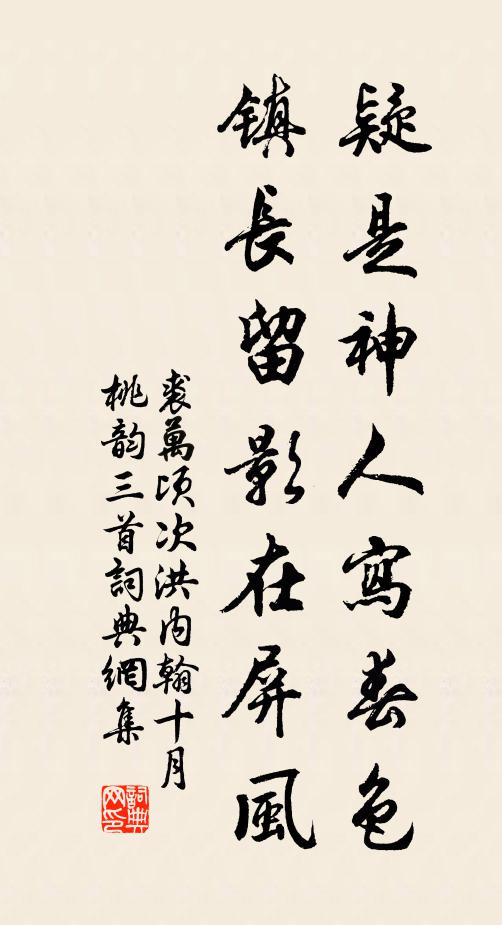 疑是神人寫春色
鎮長留影在屏風
裘萬頃次洪內翰十月
桃韵三首詞典網集
詞典
网印